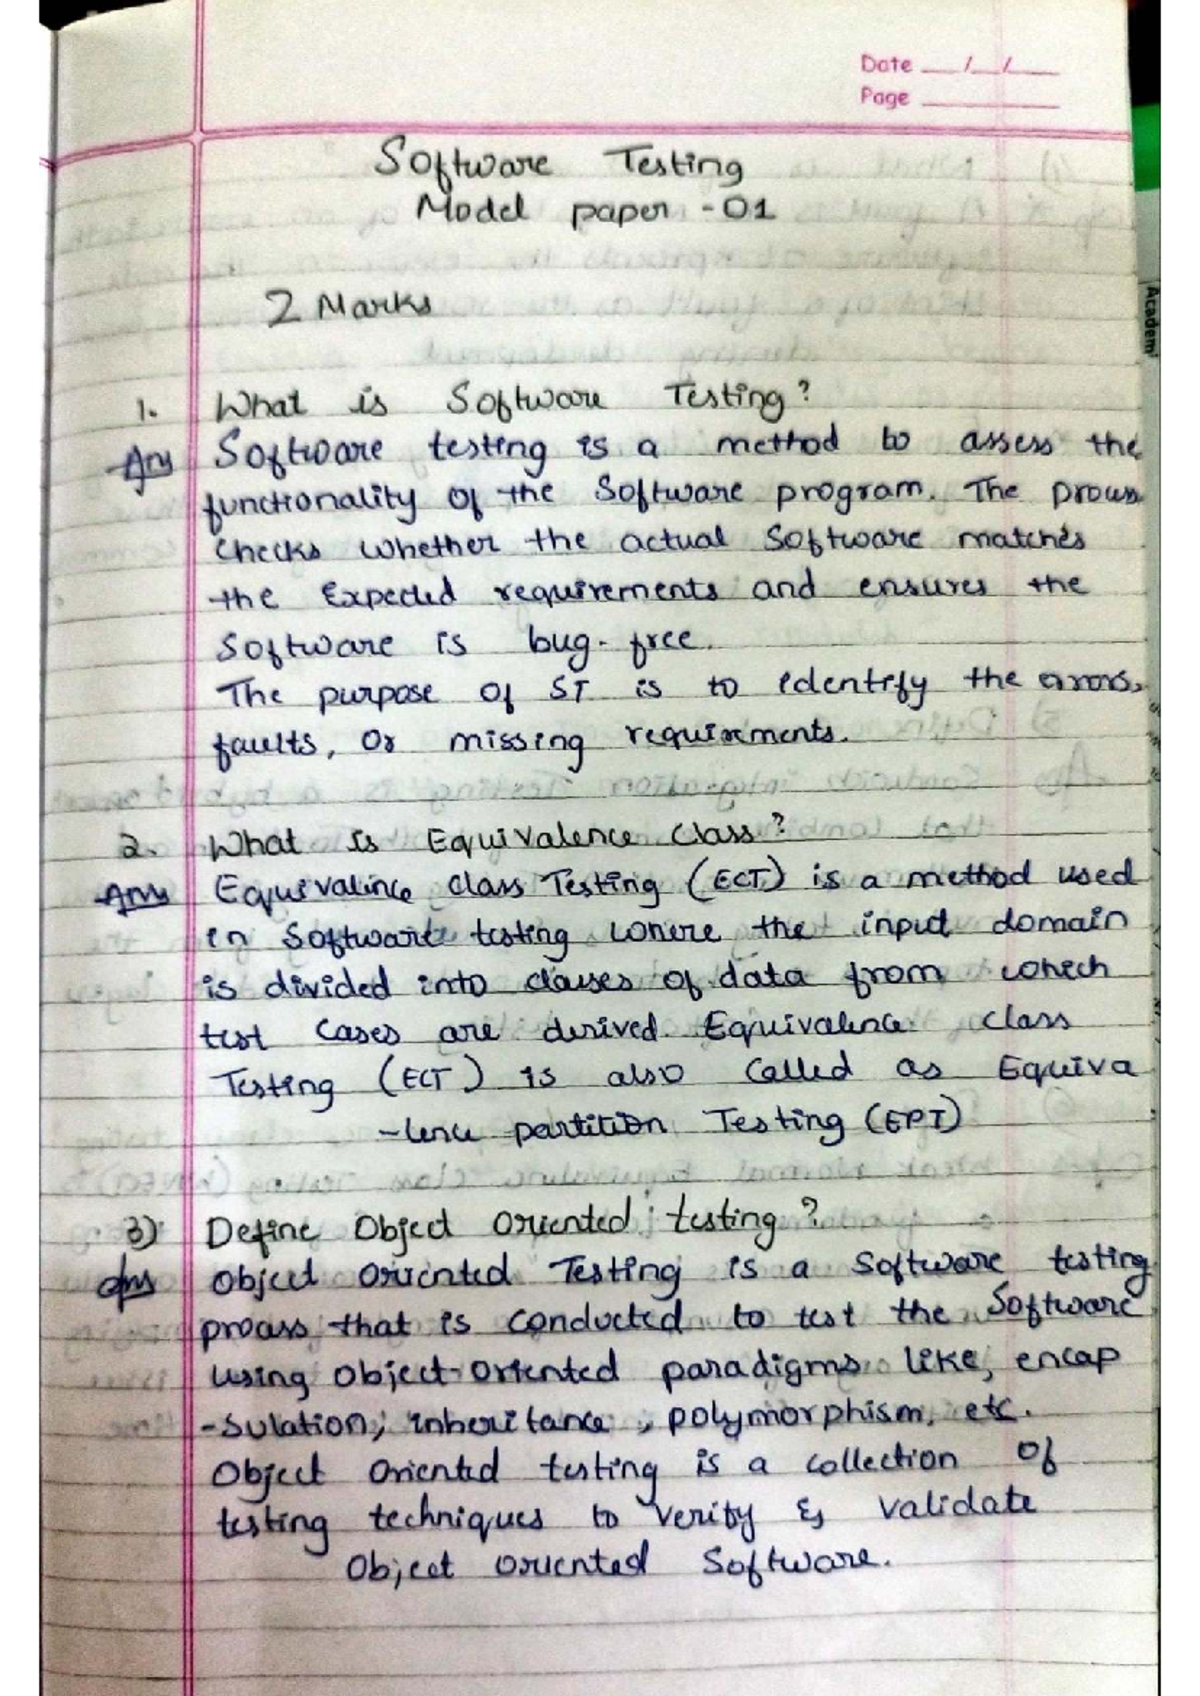 Date __/__/__
Page ______
Software Testing
Model paper - 01
2 Marks
1. What is Software Testing?
Ans Software testing is a method to assess the
functionality of the Software program. The process
checks whether the actual Software matches
the Expected requirements and ensures the
Software is bug-free.
The purpose of ST is to identify the errors,
faults, or missing requirements.
2. What is Equivalence Class?
Ans Equivalence class Testing (ECT) is a method used
in Software testing where the input domain
is divided into classes of data from which
test cases are derived. Equivalence class
Testing (ECT) is also called as Equiva
-lence partition Testing (EPT)
3) Define Object oriented testing?
Ans Object oriented Testing is a Software testing
process that is conducted to test the Software
using object-oriented paradigms like, encap
-sulation, inheritance, polymorphism, etc.
Object oriented testing is a collection of
testing techniques to verify & validate
Object oriented Software.
Academi